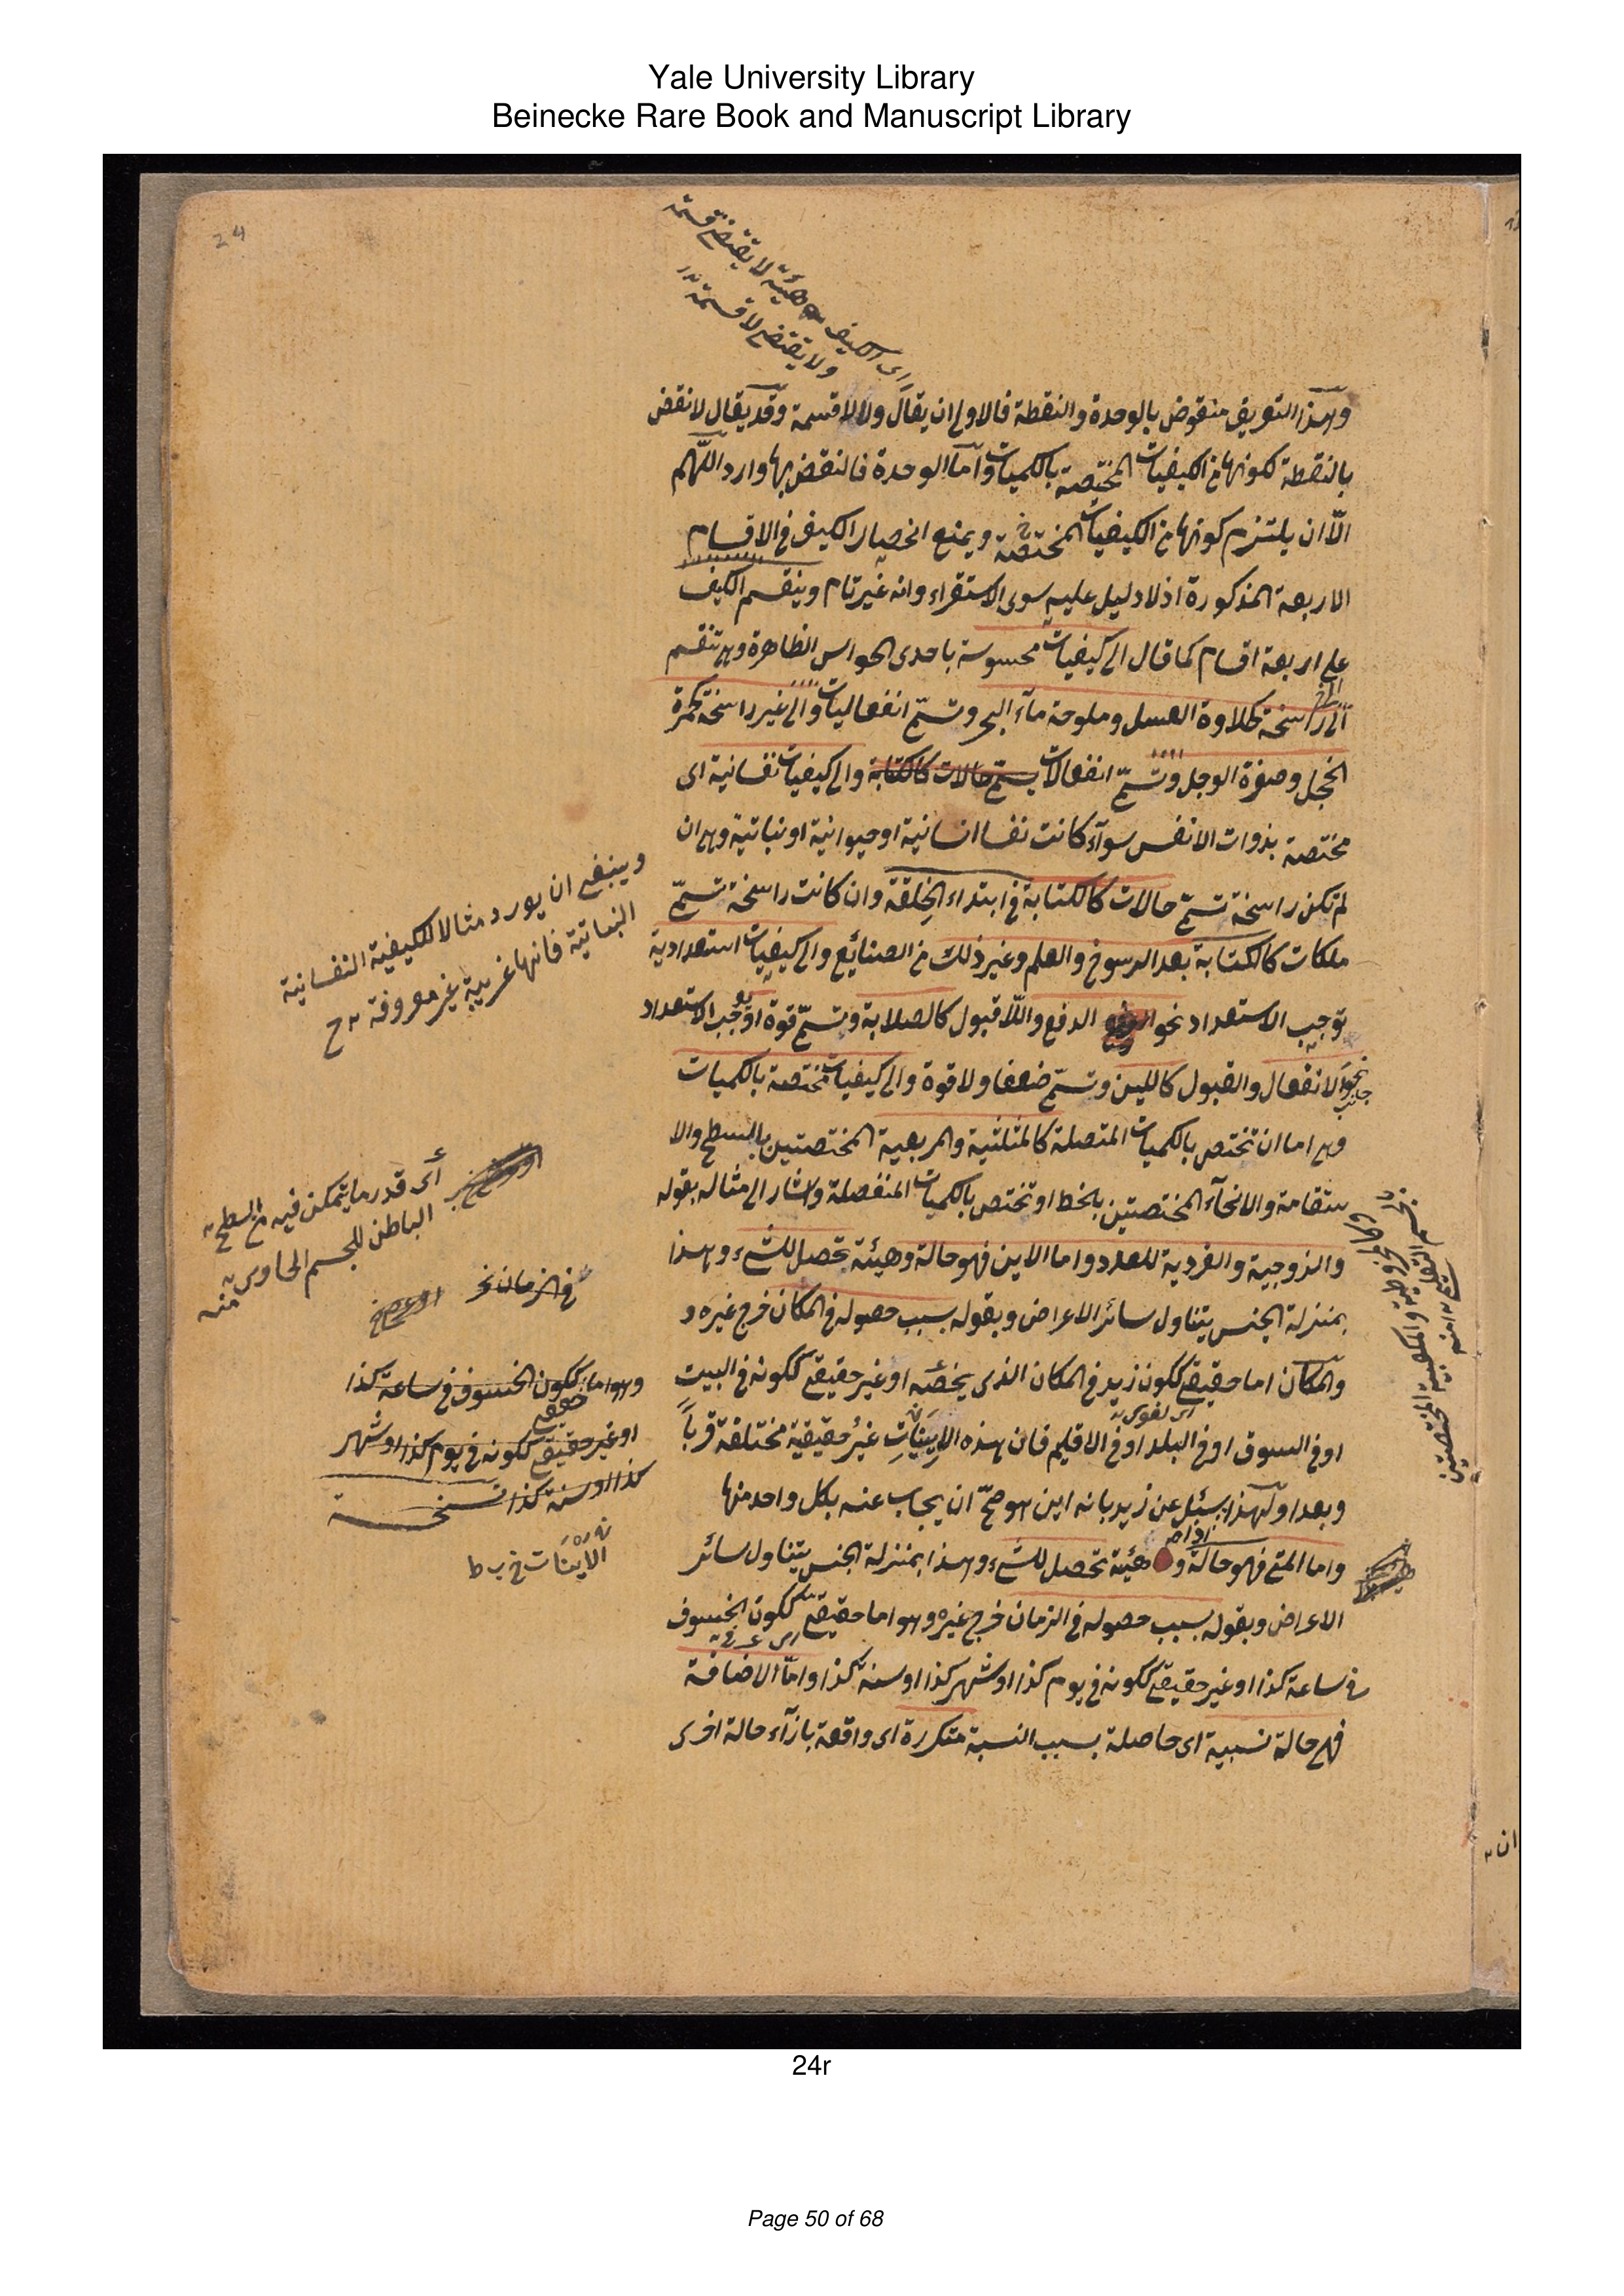 Yale University Library
Beinecke Rare Book and Manuscript Library
24
اى الكيف هيئة لا يقتضى قسمة
ولا يقتضى لا قسمة
وهذا التعريف منقوض بالوحدة والنقطة فالاولى ان يقال ولا لا قسمة وقد يقال لا نقض
بالنقطة لكونها من الكيفيات المختصة بالكميات واما الوحدة فالنقض بها وارد اللّهم
الّا ان يلتزم كونها من الكيفيات المختصة ويمنع انحصار الكيف فى الاقسام
الاربعة المذكورة اذ لا دليل عليه سوى الاستقراء وانه غير تام وينقسم الكيف
على اربعة اقسام كما قال الى كيفيات محسوسة باحدى الحواس الظاهرة وهى تنقسم
الى راسخة كحلاوة العسل وملوحة مآء البحر وتسمّى انفعاليات والى غير راسخة كحمرة
الخجل وصفرة الوجل وتسمّى انفعالات يسمّى حالات كالكتابة والى كيفيات نفسانية اى
مختصة بذوات الانفس سوآء كانت نفسا انسانية او حيوانية او نباتية وهى ان
لم تكن راسخة تسمّى حالات كالكتابة فى ابتداء الخِلقة وان كانت راسخة تسمّى
ملكات كالكتابة بعد الرسوخ والعلم وغير ذلك من الصنائع والى كيفيات استعدادية
توجب الاستعداد نحو الدفع واللّا قبول كالصلابة وتسمّى قوة او توجب الاستعداد
نحو الانفعال والقبول كاللين وتسمّى ضعفا ولا قوة والى كيفيات مختصة بالكميات
جانب
وهى اما ان تختص بالكميات المتصلة كالمثلثية والمربعية المختصتين بالسطح والا
ستقامة والانحآء المختصتين بالخط او تختص بالكميات المنفصلة واشار الى مثاله بقوله
والزوجية والفردية للعدد واما الاين فهو حالة وهيئة تحصل للشىء وهذا
بمنزلة الجنس يتناول سائر الاعراض وبقوله بسبب حصوله فى المكان خرج غيره و
والمكان اما حقيقى ككون زيد فى المكان الذى يخصّه او غير حقيقى ككونه فى البيت
اى لغوى
او فى السوق او فى البلد او فى الاقليم فان هذه الاينيَّات غيرُ حقيقية مختلفة قرباً
وبعدا ولهذا يسئل عن زيد بانه اين هو صحّ ان يجاب عنه بكل واحد منها
واما المتى فهو حالة و هيئة تحصل للشىء وهذا بمنزلة الجنس يتناول سائر
الاعراض وبقوله بسبب حصوله فى الزمان خرج غيره وهو اما حقيقى ككون الخسوف
فى ساعة كذا او غير حقيقى ككونه فى يوم كذا او شهر كذا او سنة كذا واما الاضافة
فهى حالة نسبية اى حاصلة بسبب النسبة متكررة اى واقعة بازآء حالة اخرى
وينبغى ان يورد مثالا للكيفية النفسانية
النباتية فانها غريبة غير معروفة
أى قدر ما يتمكن فيه من السطح
الباطن للجسم الحاوى منه
فى الزمان
وهو اما حقيقى ككون الخسوف فى ساعة كذا
او غير حقيقى ككونه فى يوم كذا او شهر
كذا او سنة كذا نسخة
الاينَات
وكالمخروطية والمكعبية المختصتين
بالجسم التعليمى منه
24r
Page 50 of 68